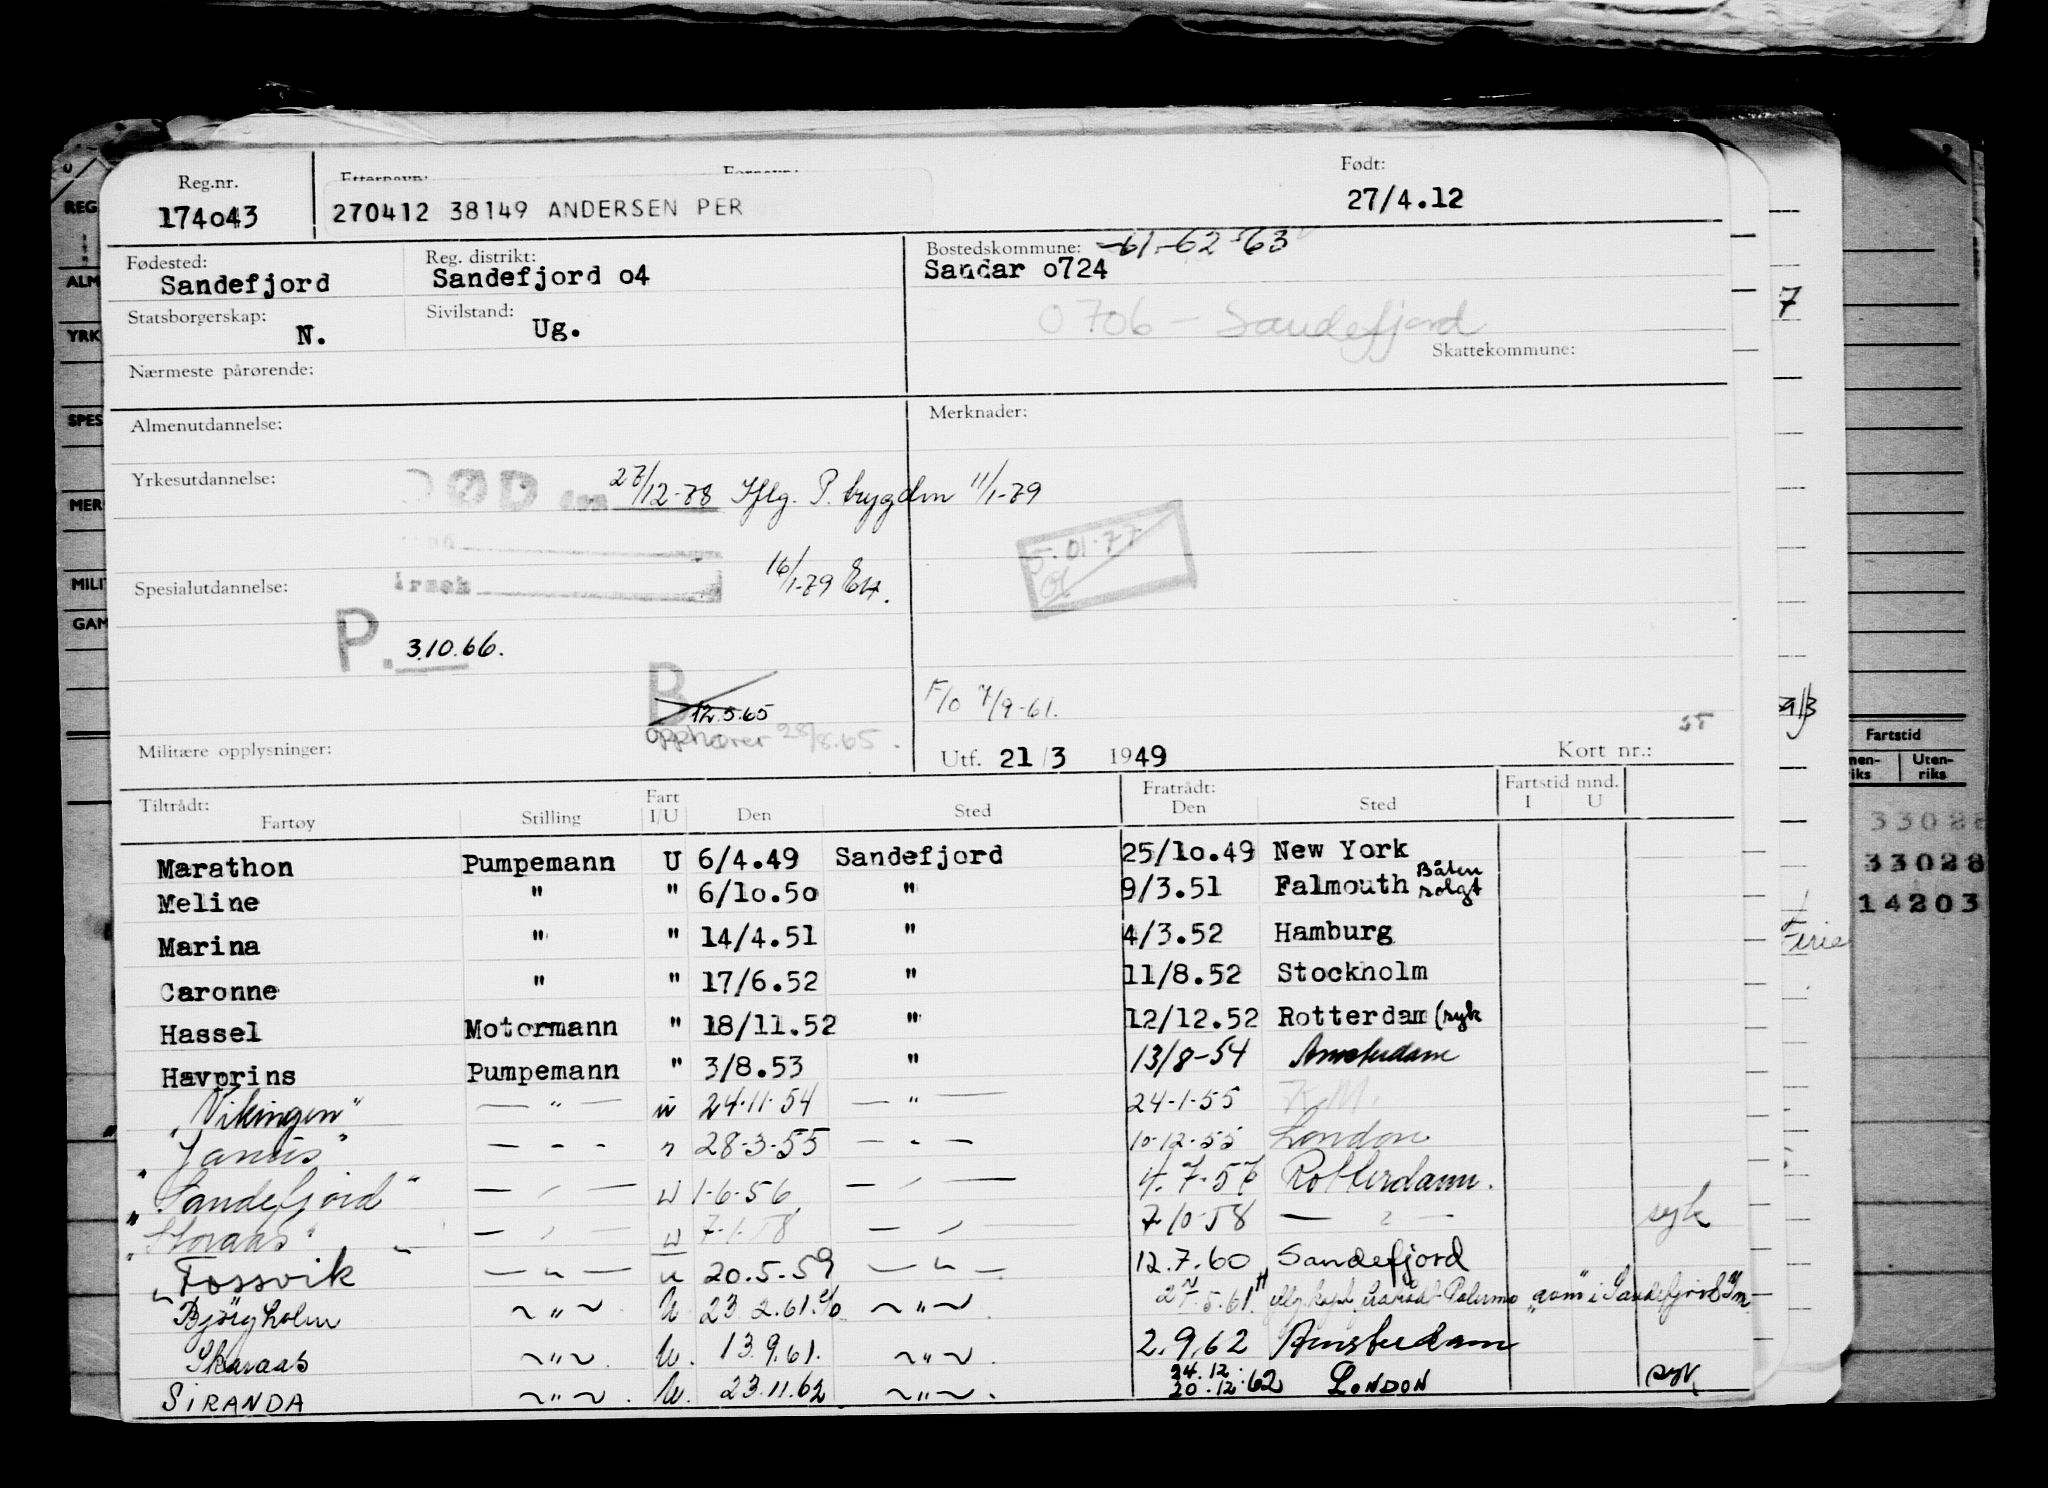 Reg.nr. Etternavn: Fornavn: Født:
174o43 270412 38149 ANDERSEN PER 27/4.12
Fødested: Reg. distrikt: Bostedskommune: -61-62-63
Sandefjord Sandefjord o4 Sandar o724
Statsborgerskap: Sivilstand: 0706 - Sandefjord
N. Ug. Skattekommune:
Nærmeste pårørende:
Almenutdannelse: Merknader:
Yrkesutdannelse: DØD den 27/12-78 Iflg. P. trygden 11/1-79
5.01.77
Spesialutdannelse: 16/1-79
P. 3.10.66.
B 12.5.65 F/O 7/9-61.
opphører 28/8.65.
Militære opplysninger: Utf. 21/3 1949 Kort nr.:
Tiltrådt: Fart Fratrådt: Fartstid mnd.
Fartøy Stilling I/U Den Sted Den Sted I U
Marathon Pumpemann U 6/4.49 Sandefjord 25/1o.49 New York
Meline " " 6/1o.5o " 9/3.51 Falmouth Båten solgt
Marina " " 14/4.51 " 4/3.52 Hamburg
Caronne " " 17/6.52 " 11/8.52 Stockholm
Hassel Motormann " 18/11.52 " 12/12.52 Rotterdam (syk
Havprins Pumpemann " 3/8.53 " 13/8-54 Amsterdam
"Vikingen" — " — u 24.11.54 — " — 24-1-55 K.M.
"Janus" - - - " 28-3-55 — - — 10-12-55 London
"Sandefjord" — " — u 1-6-56 — " — 4.7.57 Rotterdam.
"Storaas" — " — u 7-1-58 — " — 7-10-58 — " — syk
"Fossvik" — " — u 20.5.59 — " — 12.7.60 Sandefjord
Bjørgholm ~ " ~ U 23 2.61. ~ " ~ 27.5.61. Palermo i Sandefjord
Skaraas ~ " ~ U. 13.9.61. ~ " ~. 2.9.62 Amsterdam
SIRANDA ~ " ~. U. 23.11.62 ~ " ~. 24.12 20.12.62 LONDON syk
REG
ALM
YRK
SPES
MER
MILI
GAM
7
Fartstid
Uten-
riks
33028
33028
14203
Ferie